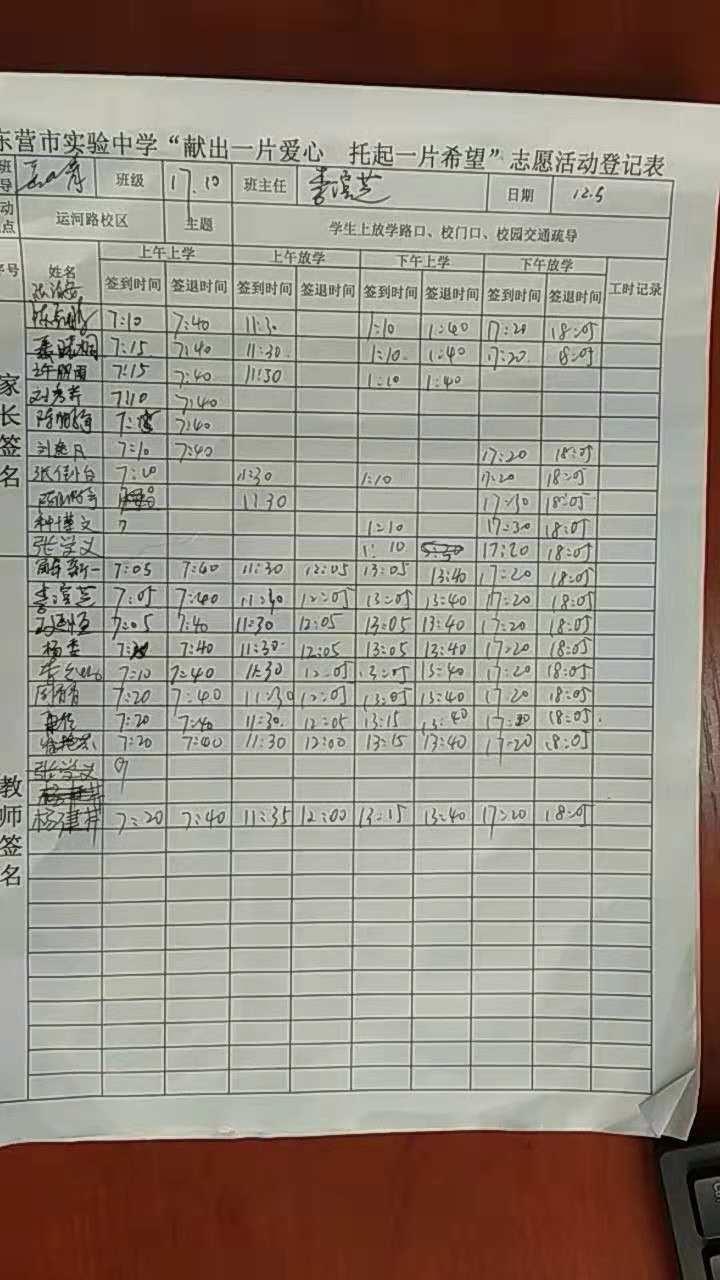 东营市实验中学“献出一片爱心 托起一片希望”志愿活动登记表
班 导 班级 17.10 班主任 李滨芝 日期 12.5
动 点 运河路校区 主题 学生上放学路口、校门口、校园交通疏导
序号 姓名 上午上学 上午放学 下午上学 下午放学 工时记录
签到时间 签退时间 签到时间 签退时间 签到时间 签退时间 签到时间 签退时间
家长签名
7:10 7:40 11:30 1:10 1:40 17:20 18:05
7:15 7:40 11:30. 1:10. 1:40 17:20. 18:05
7:15 7:40 11:30 1:10 1:40
7:10 7:40
7:40
7:10 7:40 17:20 18:05
11:30 1:10 17:20 18:05
11:30 17:30 18:05
1:10 17:30 18:05
张学义 1:10 17:20 18:05
教师签名
7:05 7:40 11:30 12:05 13:05 13:40 17:20 18:05
李滨芝 7:05 7:40 11:30 12:05 13:05 13:40 17:20 18:05
7:05 7:40 11:30 12:05 13:05 13:40 17:20 18:05
7:40 11:30. 12:05 13:05 13:40 17:20 18:05
7:10 7:40 11:30 12:05 13:05 13:40 17:20 18:05
7:20 7:40 11:30 12:05 13:05 13:40 17:20 18:05
7:20 7:40 11:30. 12:05 13:15 13:40 17:20 18:05.
7:20 7:40 11:30 12:00 13:15 13:40 17:20 18:05
张学义
杨建井 7:20 7:40 11:35 12:00 13:15 13:40 17:20 18:05